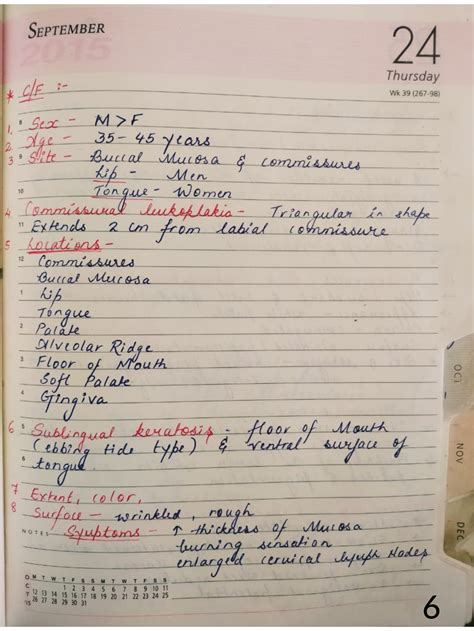 SEPTEMBER
2015
24
Thursday
Wk 39 (267-98)
* C/F :-
1. Sex - M>F
2. Age - 35-45 years
3 Site - Buccal Mucosa & commissures
Lip - Men
Tongue - Women
4 Commissural leukoplakia - Triangular in shape
Extends 2 cm from labial commissure
5 Locations -
Commissures
Buccal Mucosa
Lip
Tongue
Palate
Alveolar Ridge
Floor of Mouth
Soft Palate
Gingiva
6 Sublingual keratosis - floor of Mouth
(ebbing tide type) & ventral surface of
tongue.
7 Extent, color,
8 Surface - wrinkled, rough
NOTES Symptoms - ↑ thickness of Mucosa
burning sensation
enlarged cervical lymph Nodes
OCT
NOV
DEC
M T W T F S S M T W T F S S
1 2 3 4 5 6 7 8 9 10 11
12 13 14 15 16 17 18 19 20 21 22 23 24 25
26 27 28 29 30 31
6